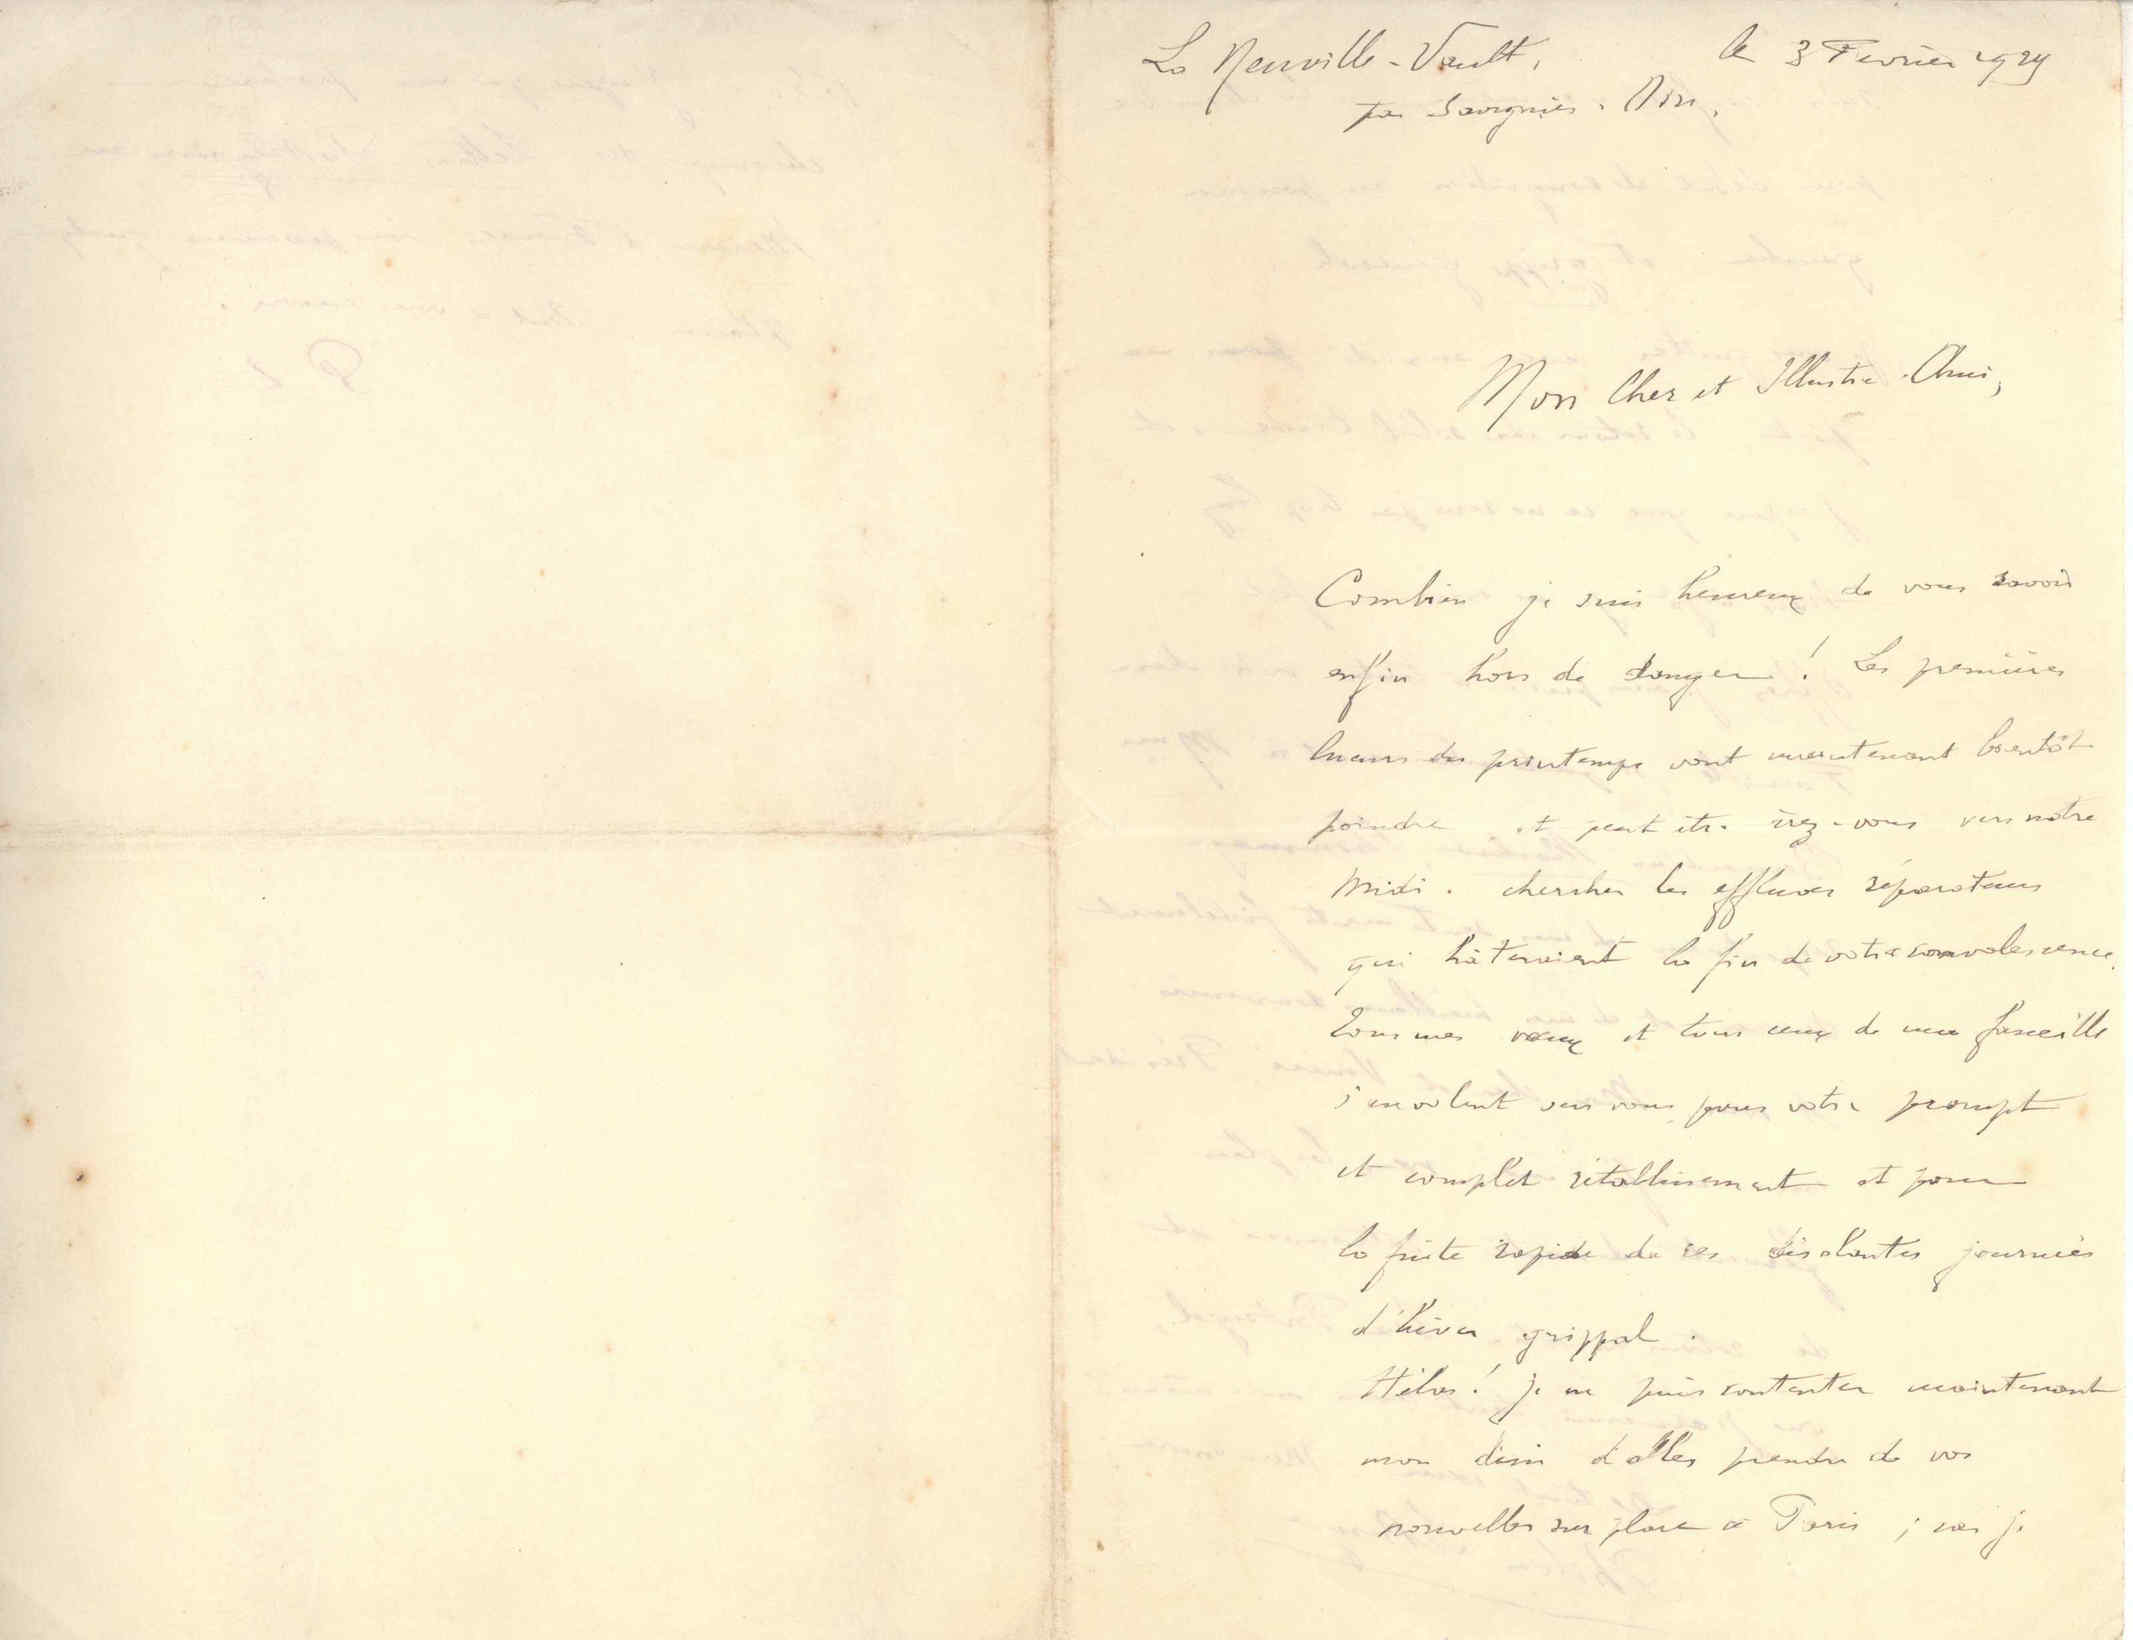 La Neuville-Vault, le 3 Février 1929
par Savignies. Oise,
Mon Cher et Illustre Ami,
Combien je suis heureux de vous savoir
enfin hors de danger ! Les premières
lueurs du printemps vont maintenant bientôt
poindre et peut être irez-vous vers notre
Midi. chercher les effluves réparateurs
qui hâteraient la fin de votre convalescence.
Tous mes vœux et tous ceux de ma famille
s'envolent vers vous pour votre prompt
et complet rétablissement et pour
la fuite rapide de ces désolantes journées
d'hiver grippal.
Hélas ! je ne puis contenter maintenant
mon désir d'aller prendre de vos
nouvelles sur place à Paris ; car je